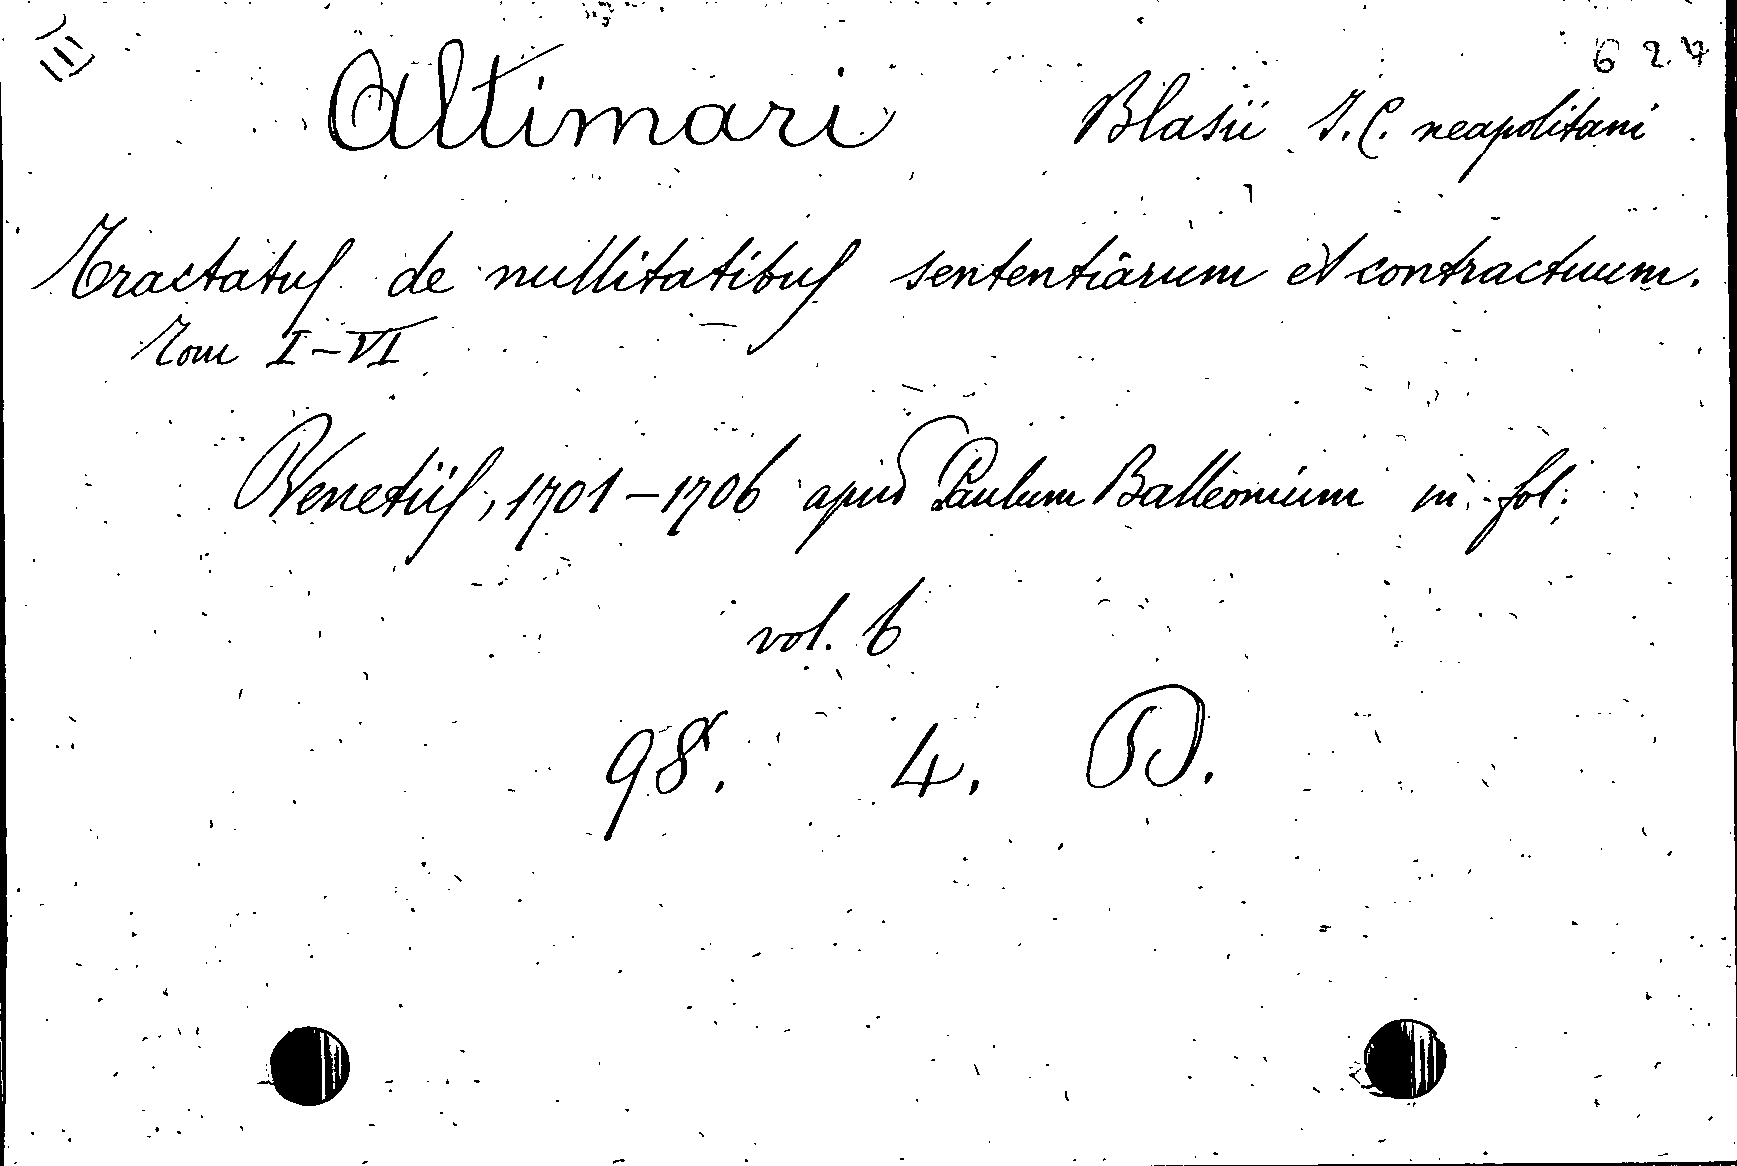 627
Altimari Blasii J. C. neapolitani
Tractatus de nullitatibus sententiarum et contractuum.
Tom I-VI
Venetiis, 1701-1706 apud Paulum Balleonium in-fol.
vol. 6
98. 4. D.